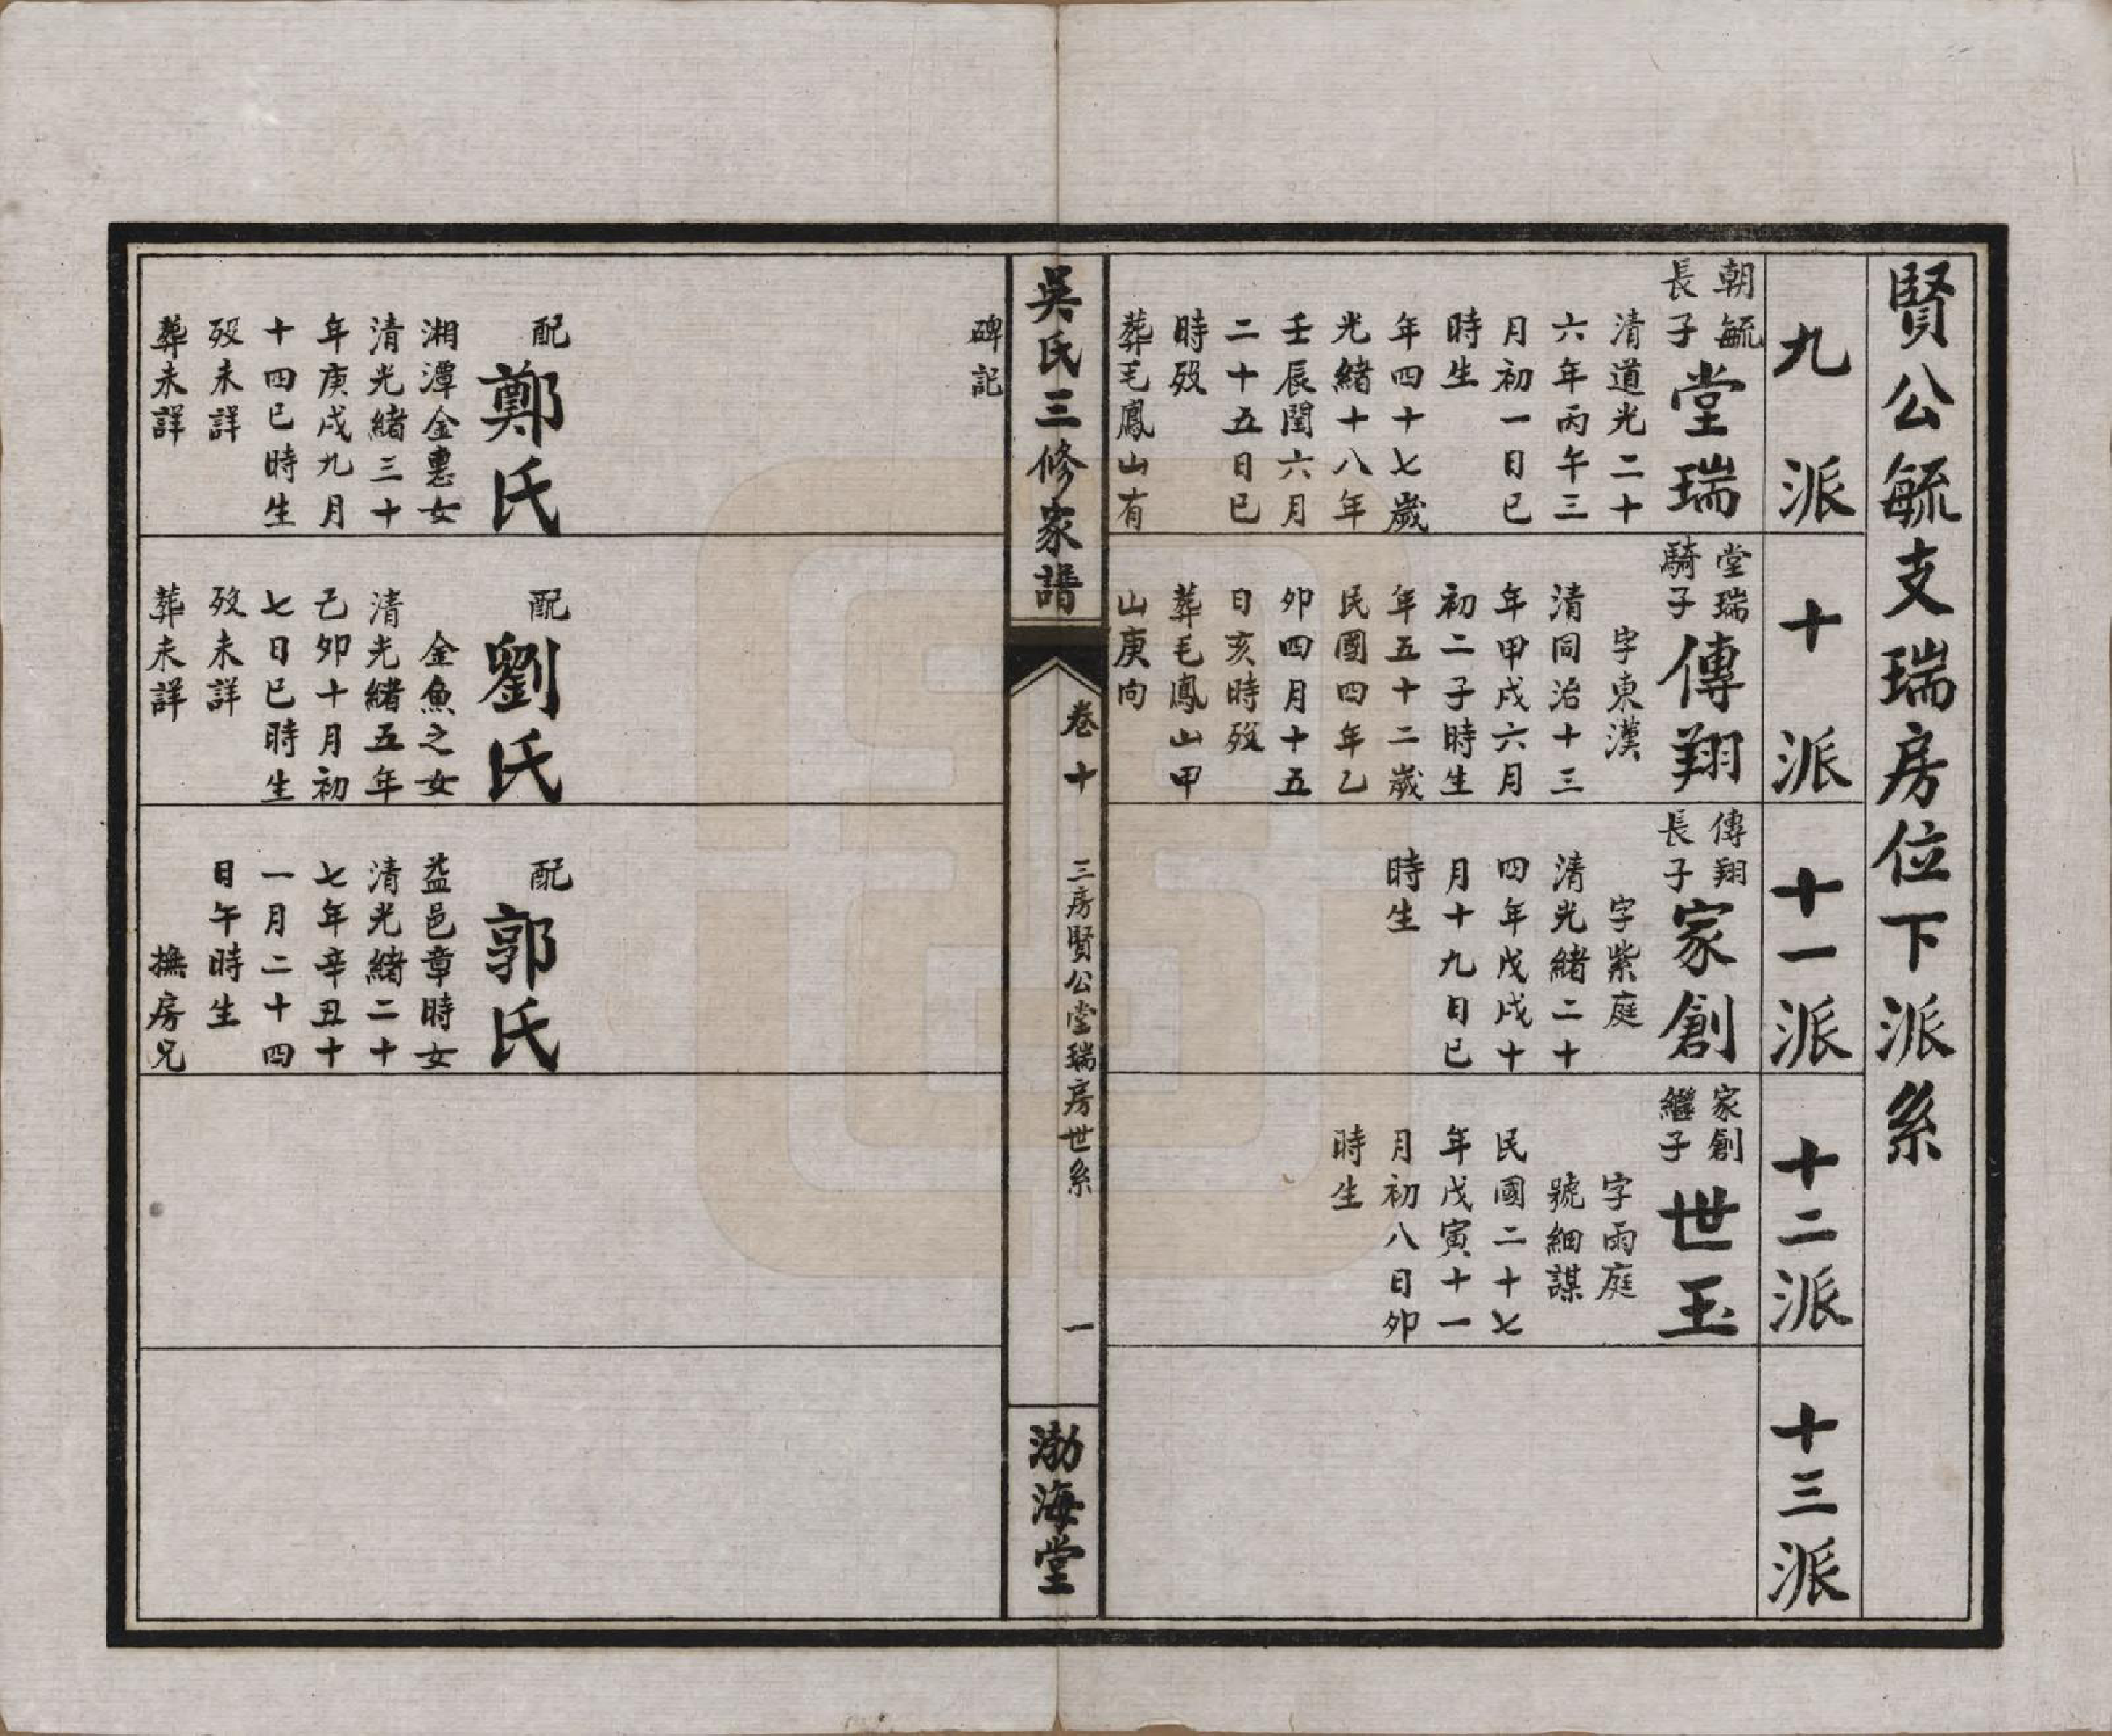 賢公毓支瑞房位下派系
九派
十派
十一派
十二派
十三派
朝毓
長子
堂瑞
清道光二十
六年丙午三
月初一日巳
時生
年四十七歲
光緒十八年
壬辰閏六月
二十五日巳
時歿
葬毛鳳山有
碑記
堂瑞
騎子
傳翔
字東漢
清同治十三
年甲戌六月
初二子時生
年五十二歲
民國四年乙
卯四月十五
日亥時歿
葬毛鳳山甲
山庚向
傳翔
長子
家創
字紫庭
清光緒二十
四年戊戌十
月十九日巳
時生
家創
繼子
世玉
字雨庭
號細謀
民國二十七
年戊寅十一
月初八日卯
時生
吳氏三修家譜
卷十
三房賢公堂瑞房世系
一
渤海堂
配
鄭氏
湘潭金惠女
清光緒三十
年庚戌九月
十四巳時生
歿未詳
葬未詳
配
劉氏
金魚之女
清光緒五年
己卯十月初
七日巳時生
歿未詳
葬未詳
配
郭氏
益邑章時女
清光緒二十
七年辛丑十
一月二十四
日午時生
撫房兄